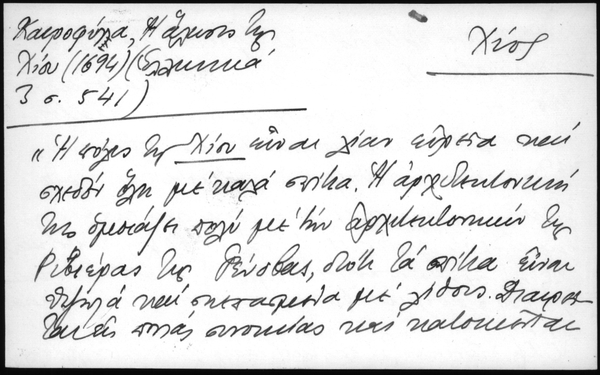 Καιροφύλα, Ἡ ἅλωσις τῆς
Χίου (1694) (Ἑλληνικά
3 σ. 541)
Χίος
"Ἡ πόλις τῆς Χίου εἶναι λίαν εὐρεῖα καί
σχεδόν ὅλη μέ καλά σπίτια. Ἡ ἀρχιτεκτονική
της ὁμοιάζει πολύ μέ τήν ἀρχιτεκτονικήν τῆς
Ριβιέρας τῆς Γένοβας, διότι τά σπίτια εἶναι
ὑψηλά καί σκεπασμένα μέ λίθους. Διαιρεῖ-
ται εἰς πολλάς συνοικίας καί κατοικεῖται